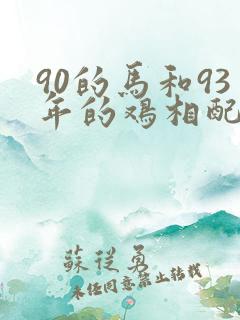 90的馬和93
年的鸡相配
蘇從勇
未经同意禁止转载